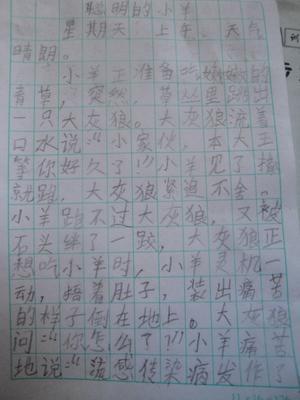 聪明的小羊
星期天上午，天气
晴朗。
小羊正准备吃嫩嫩的
青草，突然，草丛里跳出
一只大灰狼。大灰狼流着
口水说：“小家伙，本大王
等你好久了！”小羊见了撒
就跑，大灰狼紧追不舍。
小羊跑不过大灰狼，又被
石头绊了一跤，大灰狼正
想吃小羊时，小羊灵机一
动，捂着肚子，装出痛苦
的样子倒在地上。大灰狼
问：“你怎么了？”小羊痛苦
地说：“流感传染病发作了